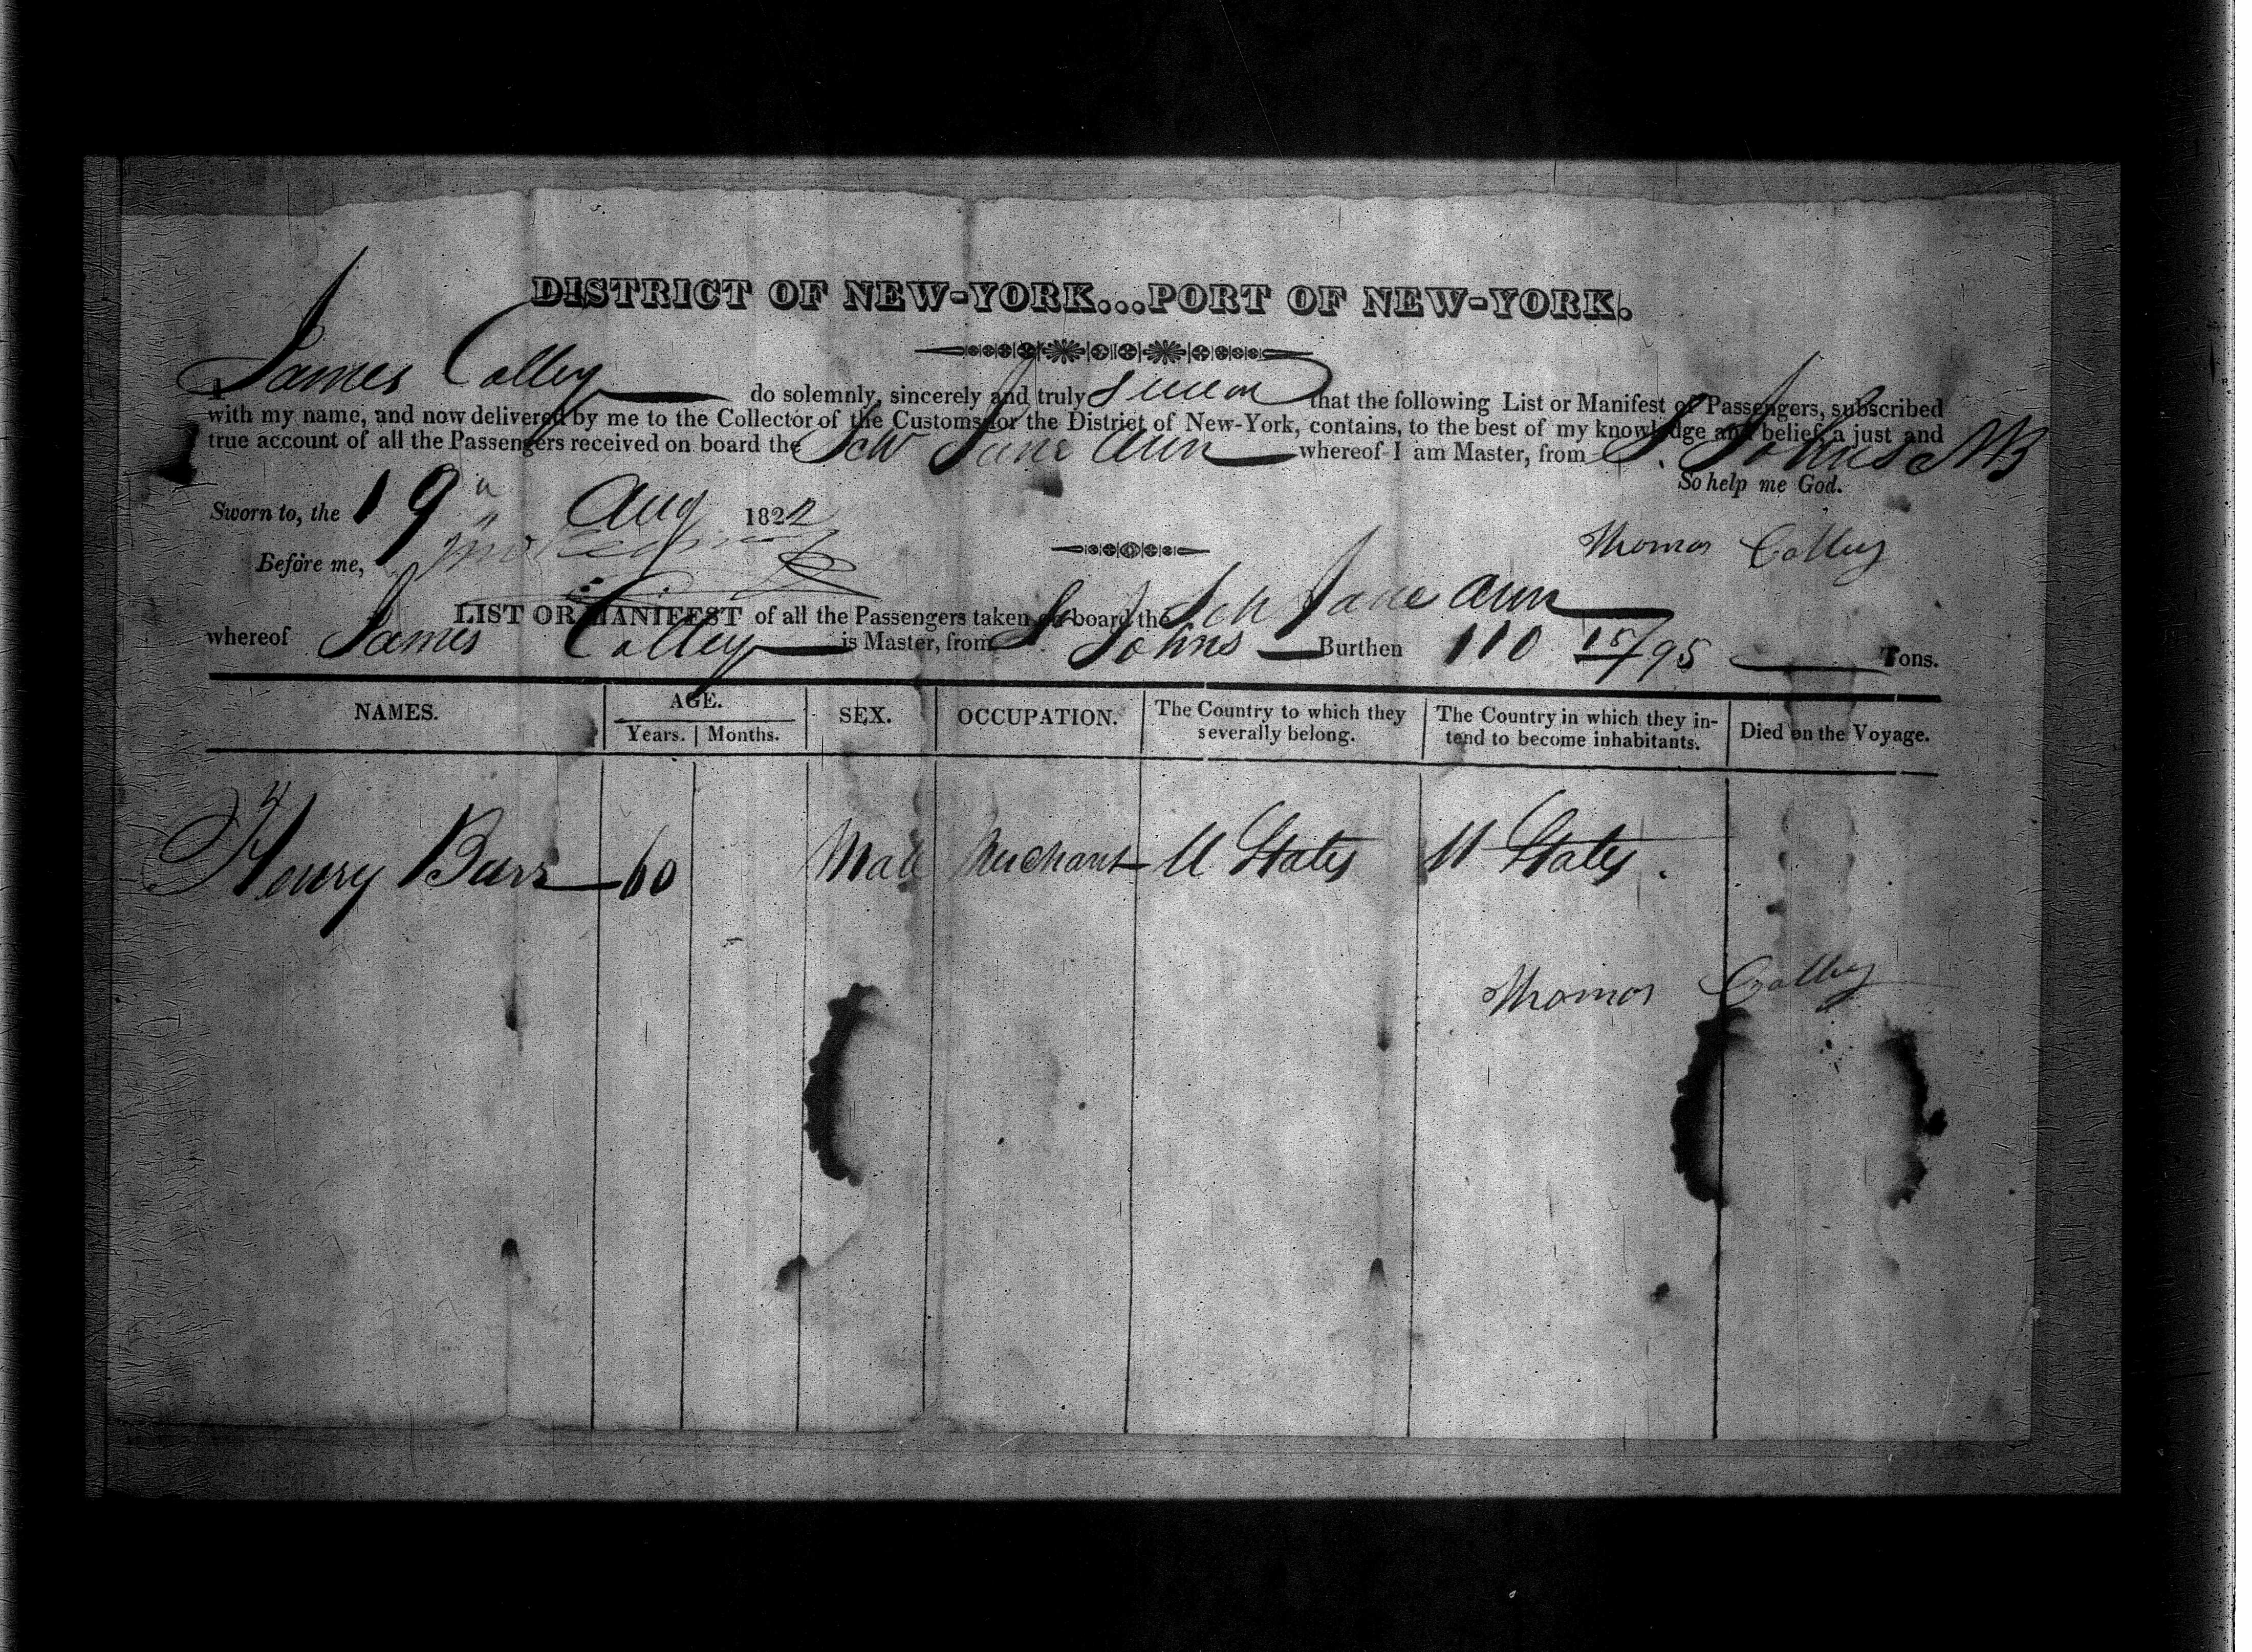 DISTRICT OF NEW-YORK...PORT OF NEW-YORK.
I James Colley do solemnly, sincerely and truly swear that the following List or Manifest of Passengers, subscribed
with my name, and now delivered by me to the Collector of the Customs for the District of New-York, contains, to the best of my knowledge and belief, a just and
true account of all the Passengers received on board the Sch Jane Ann whereof I am Master, from St. Johns NB
So help me God.
Sworn to, the 19 Aug 1822
Thomas Colley
Before me,
LIST OR MANIFEST of all the Passengers taken on board the Sch Jane Ann
whereof James Colley is Master, from St. Johns Burthen 110 15/95 Tons.
NAMES. AGE. SEX. OCCUPATION. The Country to which they severally belong. The Country in which they intend to become inhabitants. Died on the Voyage.
Years. Months.
Henry Barr 60 Male Merchant U States U States.
Thomas Colley